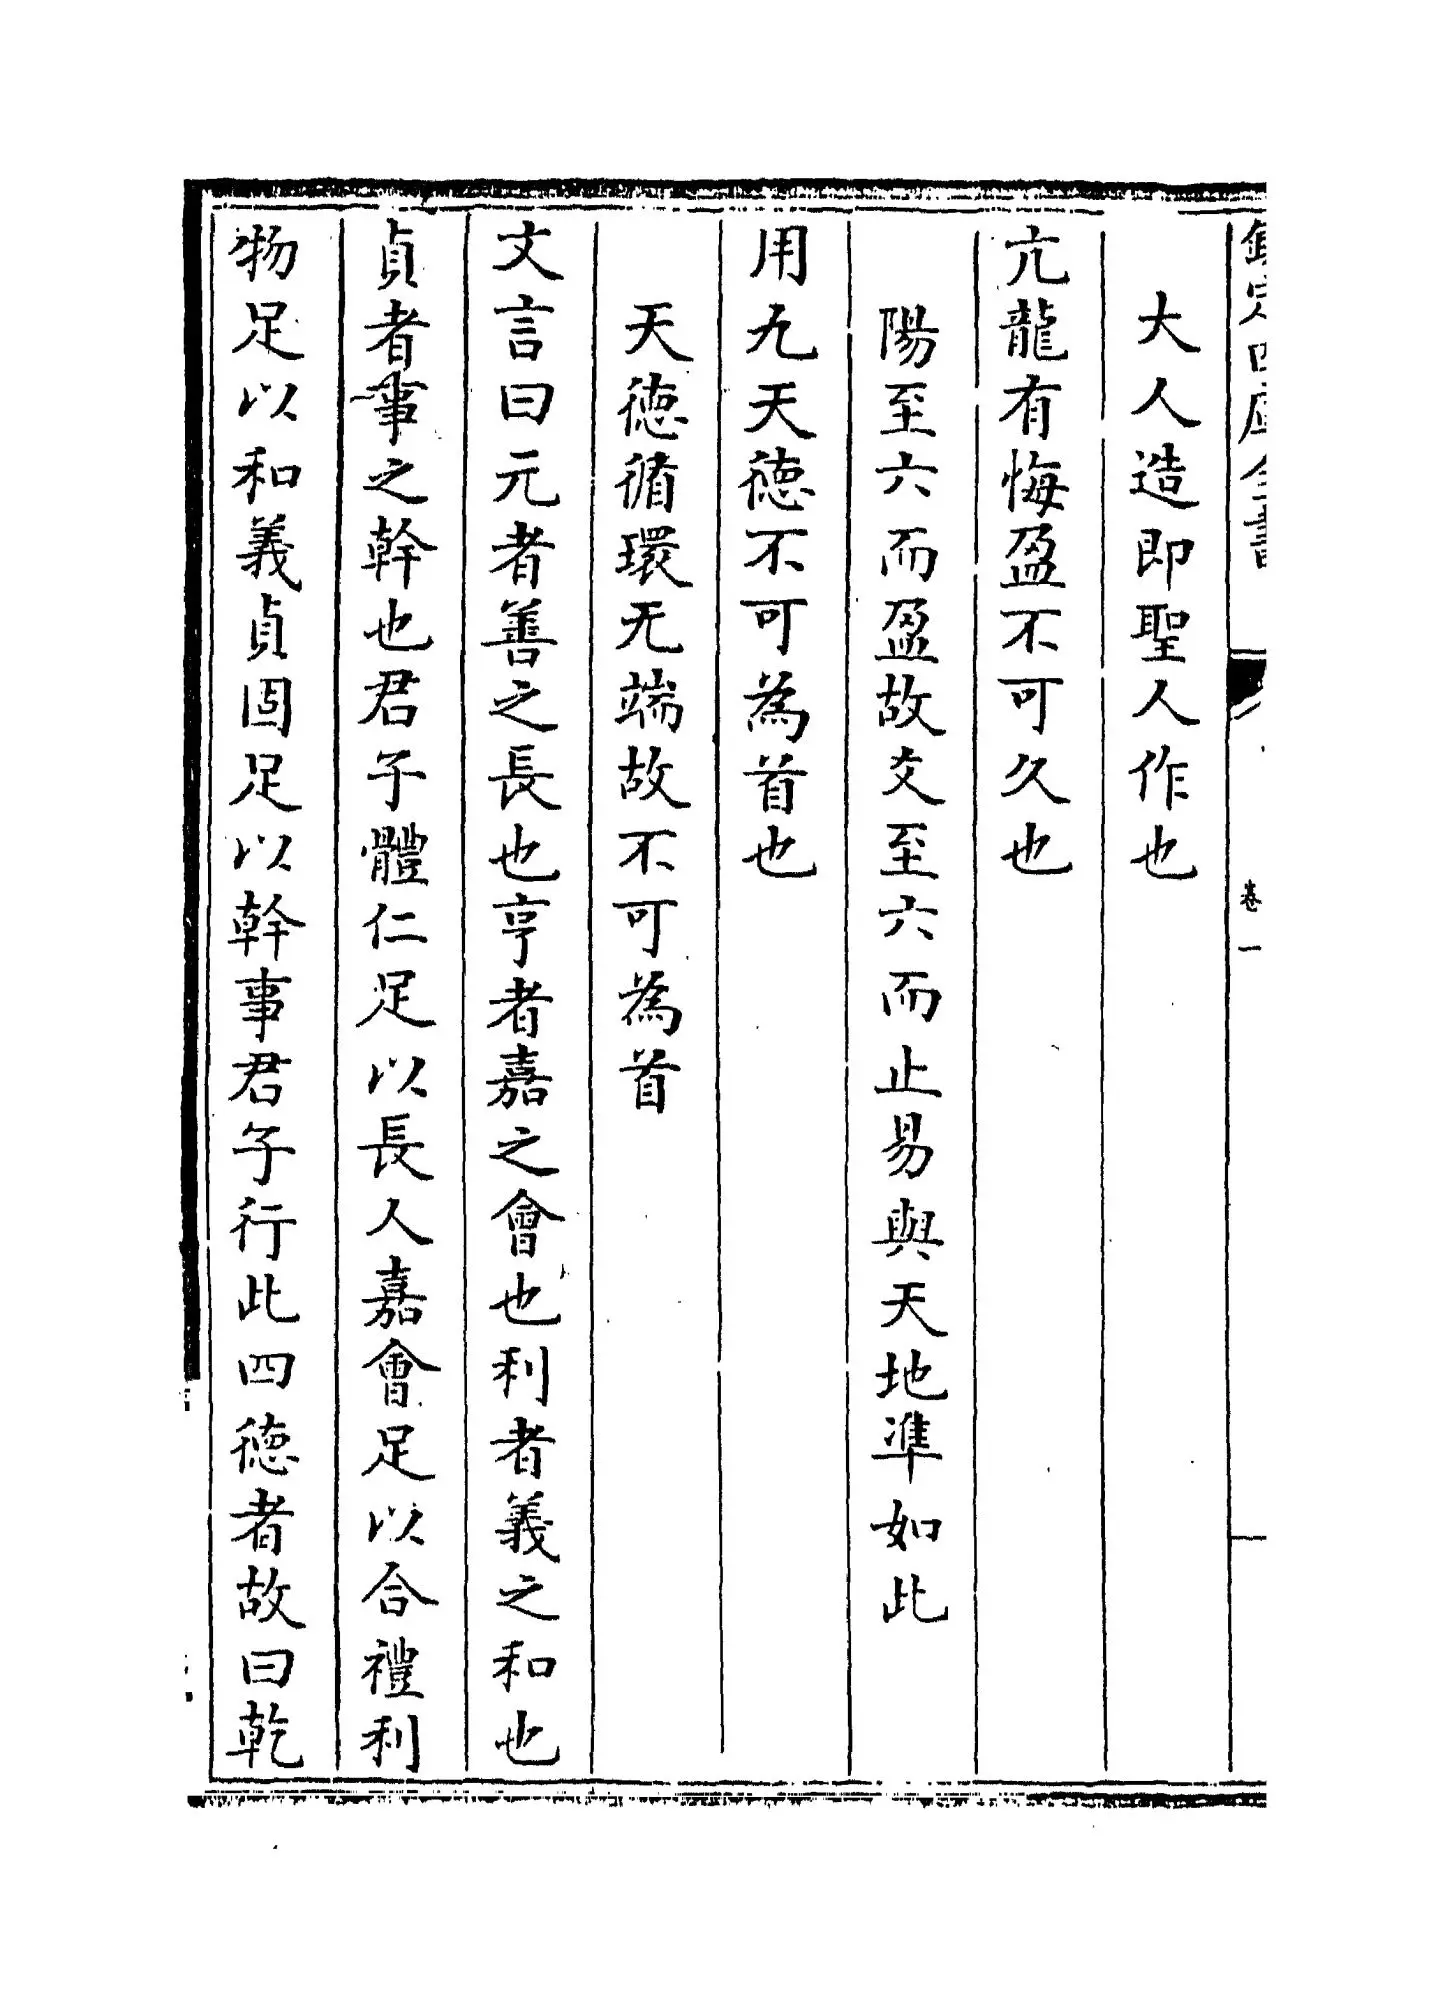 欽定四庫全書
卷一
大人造即聖人作也
亢龍有悔盈不可久也
陽至六而盈故爻至六而止易與天地準如此
用九天德不可為首也
天德循環无端故不可為首
文言曰元者善之長也亨者嘉之會也利者義之和也
貞者事之幹也君子體仁足以長人嘉會足以合禮利
物足以和義貞固足以幹事君子行此四德者故曰乾